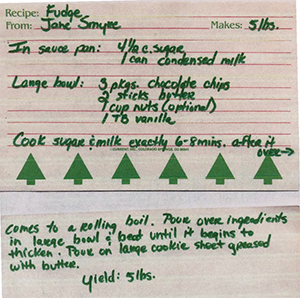 Recipe: Fudge
From: Jane Smyre Makes: 5 lbs.
In sauce pan: 4 1/2 c. sugar
1 can condensed milk
Large bowl: 3 pkgs. chocolate chips
2 sticks butter
1 cup nuts (optional)
1 TB vanilla
Cook sugar & milk exactly 6-8 mins. after it
over→
comes to a rolling boil. Pour over ingredients
in large bowl & beat until it begins to
thicken. Pour on large cookie sheet greased
with butter.
Yield: 5 lbs.